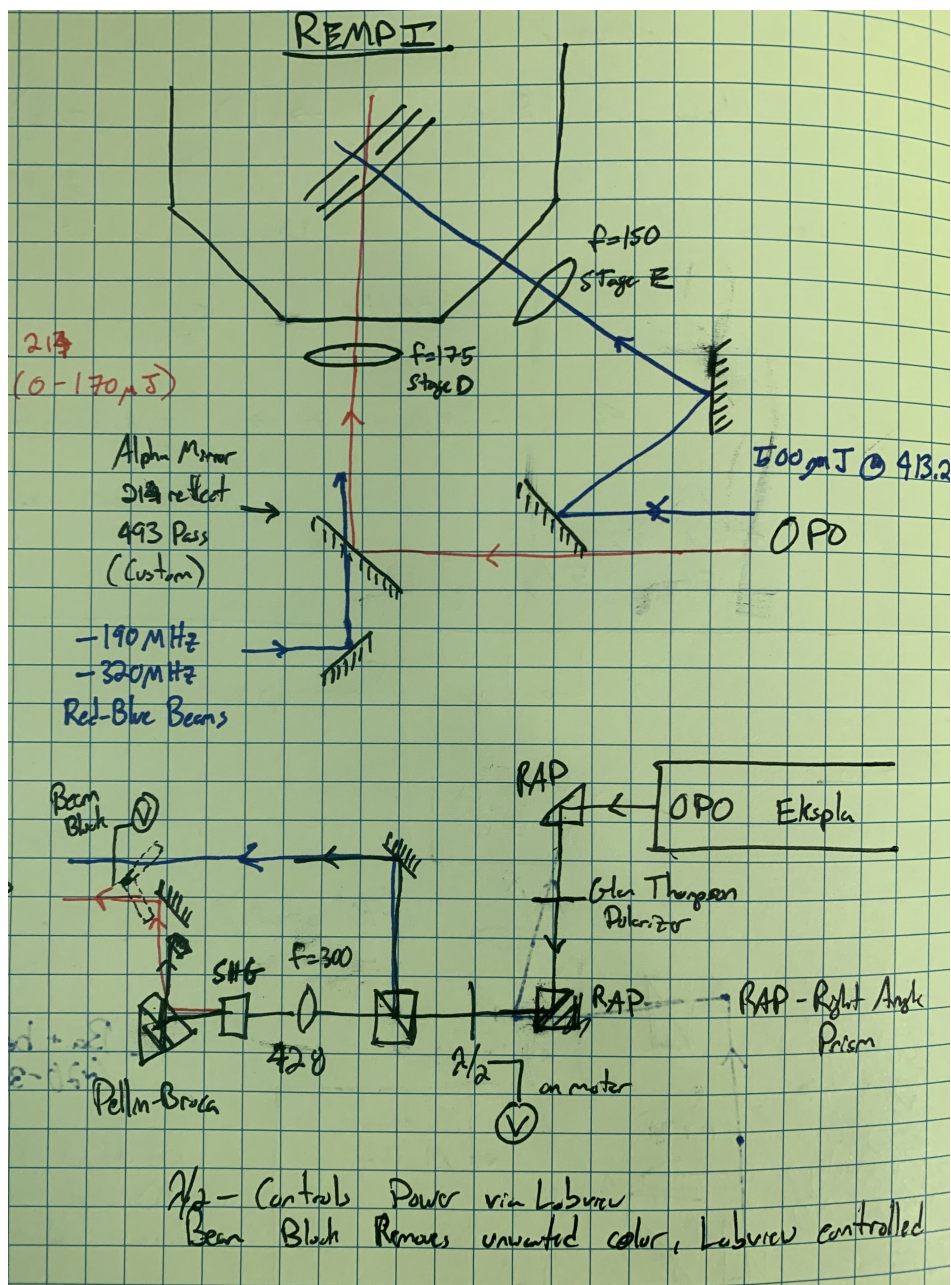 REMPI
f=150
Stage E
(0-170μJ)
f=175
Stage D
Alpha Mirror
reflect
493 Pass
(Custom)
500μJ @ 413.2
OPO
-190MHz
-320MHz
Red-Blue Beams
RAP
OPO Ekspla
Beam
Block
V
Glen Thompson
Polarizer
f=300
SHG
RAP
RAP-Right Angle
Prism
428
λ/2
on motor
Pellin-Broca
V
λ/2 - Controls Power via Labview
Beam Block Removes unwanted color, Labview controlled